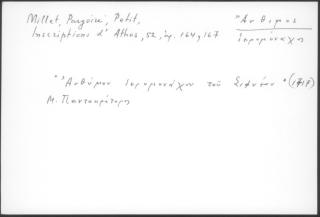 Millet, Pargoire, Petit,
Inscriptions d'Athos, 52, ἀρ. 164, 167
Ἄνθιμος
ἱερομόναχος
"Ἀνθίμου ἱερομονάχου τοῦ Σιφνίου" (1717)
Μ. Παντοκράτορος